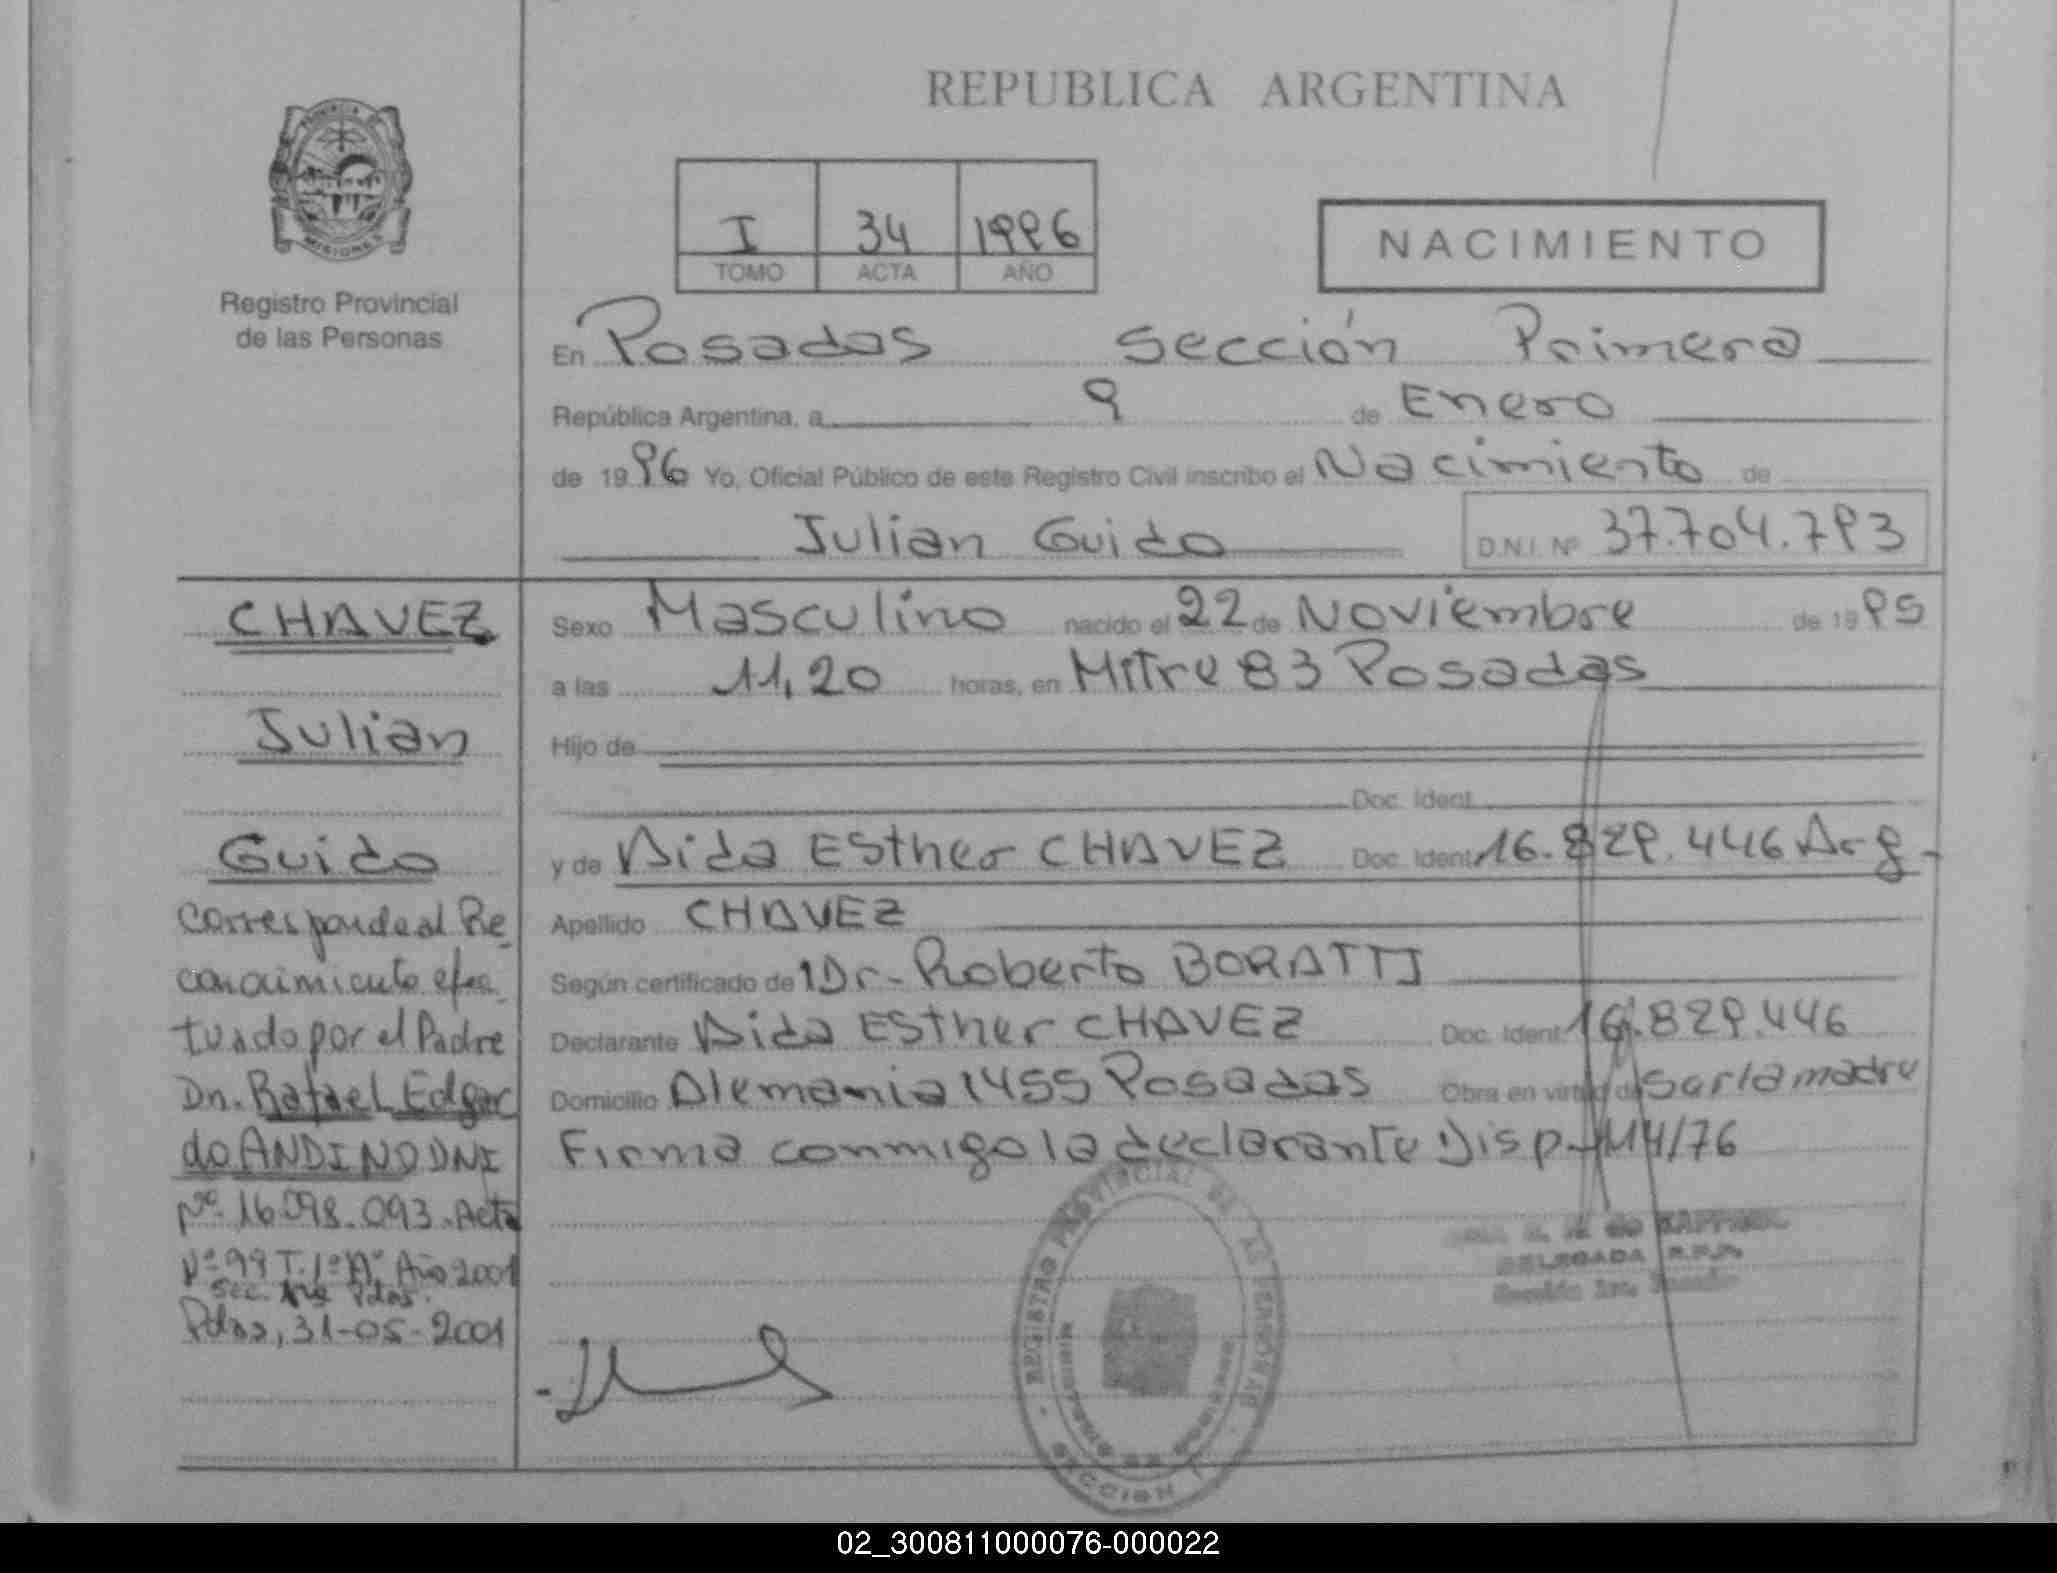 REPUBLICA ARGENTINA
PROVINCIA
MISIONES
Registro Provincial
de las Personas
I 34 1996
TOMO ACTA AÑO
NACIMIENTO
En Posadas Sección Primera
República Argentina, a 9 de Enero
de 1996 Yo, Oficial Público de este Registro Civil inscribo el Nacimiento de
Julian Guido D.N.I. Nº 37.704.793
CHAVEZ
Julian
Guido
Corresponde al Re-
conocimiento efec-
tuado por el Padre
Dn. Rafael Edgar
do ANDINO DNI
Nº 16.098.093. Acta
Nº 99 T. 1º Aº Año 2001
Sec. 1ra Pdas.
Pdas, 31-05-2001
Sexo Masculino nacido el 22 de Noviembre de 1995
a las 11,20 horas, en Mitre 83 Posadas
Hijo de
Doc. Ident.
y de Aida Esther CHAVEZ Doc. Ident. 16.829.446 Arg.-
Apellido CHAVEZ
Según certificado de 1 Dr.- Roberto BORATTI
Declarante Aida Esther CHAVEZ Doc. Ident. 16.829.446
Domicilio Alemania 1455 Posadas Obra en virtud de Ser la madre
Firma conmigo la declarante Disp. 114/76
DELEGADA R.P.P.
Sección 1ra.
REGISTRO PROVINCIAL DE LAS PERSONAS
SECCION 1
02_300811000076-000022